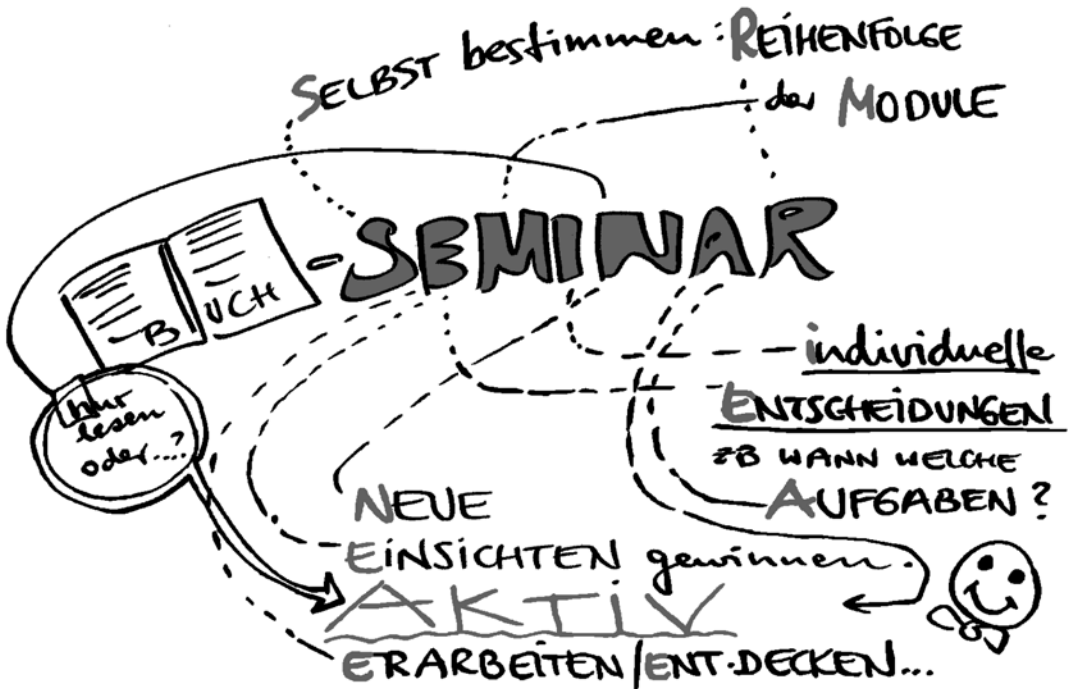 SELBST bestimmen: REIHENFOLGE
der MODULE
BUCH-SEMINAR
individuelle
ENTSCHEIDUNGEN
ZB WANN WELCHE
AUFGABEN?
nur
lesen
oder....?
NEUE
EINSICHTEN gewinnen.
AKTiV
ERARBEITEN/ENT.DECKEN...